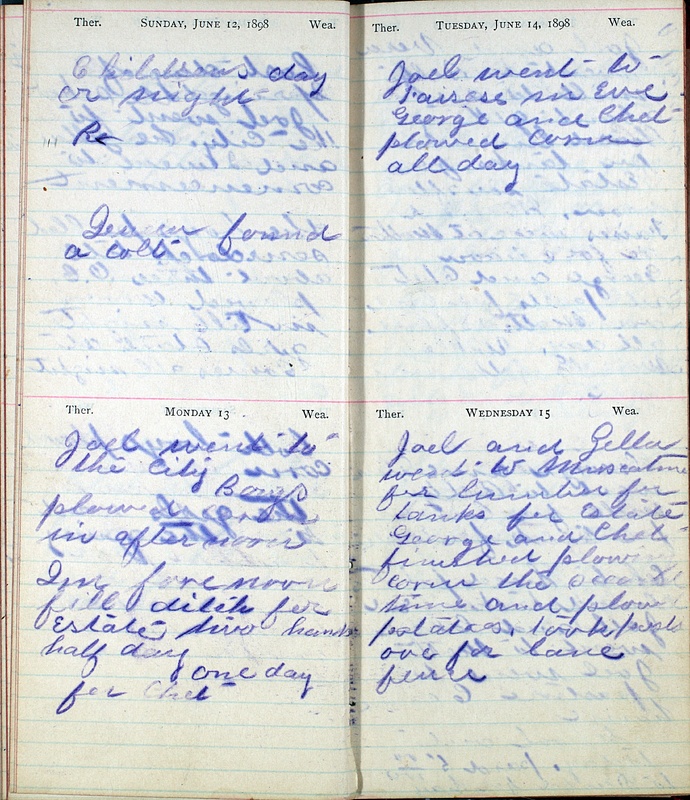 Ther. SUNDAY, JUNE 12, 1898 Wea.
Childrens day
or night
Re
found
a colt
MONDAY 13
Ther. Wea.
Joel went to
the City
Boys
plowed
in afternoon
In forenoon
fill ditch for
Estate two hands
half day
one day
for Chet
Ther. TUESDAY, JUNE 14, 1898 Wea.
Joel went to
in Eve
George and Chet
plowed Corn
all day
Ther. WEDNESDAY 15 Wea.
Joel and Zella
went to Muscatine
for lumber for
tanks for Estate
George and Chet
finished plowing
corn the second
time and plow
potatoes, took posts
over for lane
fence